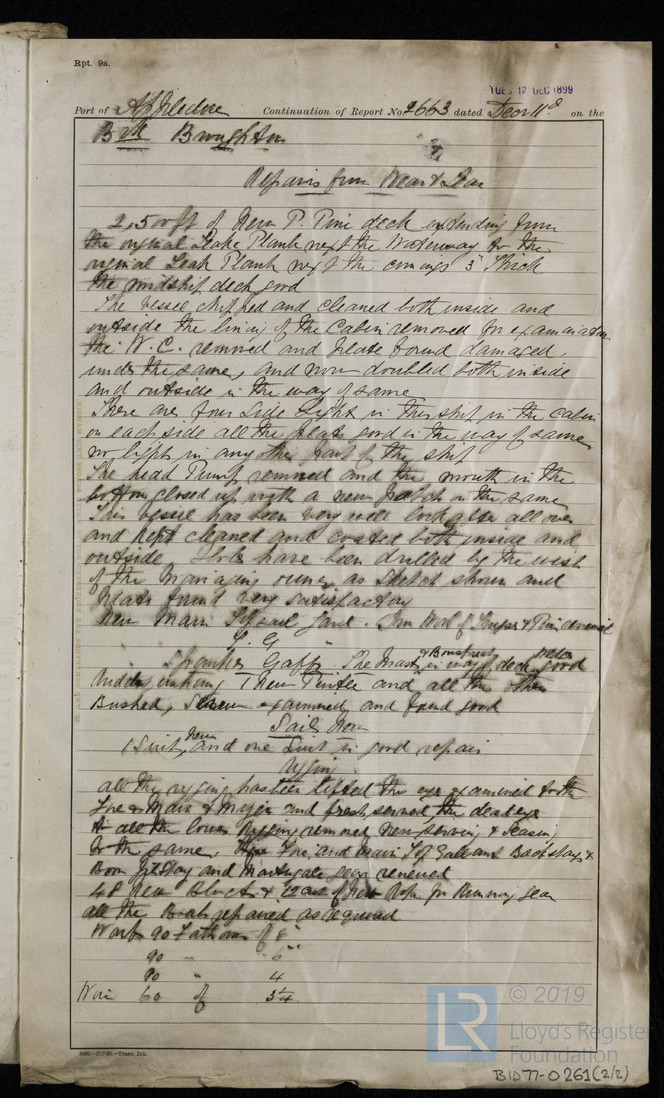 Rpt. 9a.
TUES 12 DEC 1899
Port of Appledore Continuation of Report No. 2663 dated Decr 11th on the
Bk Broughton
Repairs from Wear & Tear
2,500 ft of New P. Pine deck extending from
the original Teake Plank next the Waterway to the
original Teak Plank next the comings 3" Thick
the midship deck good
The vessel chipped and cleaned both inside and
outside the lining of the Cabin removed for examination
the W.C. removed and plate found damaged,
under the same, and now doubled both inside
and outside in the way of same
There are four Side Light in this ship in the Cabin
on each side all the plats good in the way of same
no light in any other part of the ship
The head Pump removed and the mouth in the
bottom closed up with a new patch on the same
This vessel has been very well look after all over
and kept cleaned and coated both inside and
outside Holes have been drilled by the wish
of the Managing owner as Sketch shown and
plates found very satisfactory
New Main Topsail yard.
Spanker Gaff. The Mast & Bowsprit in way of deck good
Rudder 1 New Pintle and all the other
Bushed, examined and found good
Sails New
1 Suit New and one Suit in good repair
Rigging
all the rigging has been lifted the eyes examined to the
Fore & Main & Mizen and fresh served the deadeye
to all the lower Rigging removed New serving & Seasing
to the same, Fore and Main T of Gallant Backstays &
Boom Jib Stay and Martingale gear renewed
48 New Block & 12 cwt of New Rope for Running gear
all the Boats repaired as required
Warps 90 Fathoms of 8"
90 " 6"
90 " 4
Wire 60 of 3¼
2000.—27/7/98.—Trans. Ink.
LR © 2019
Lloyd's Register
Foundation
BID77-0261(2/2)